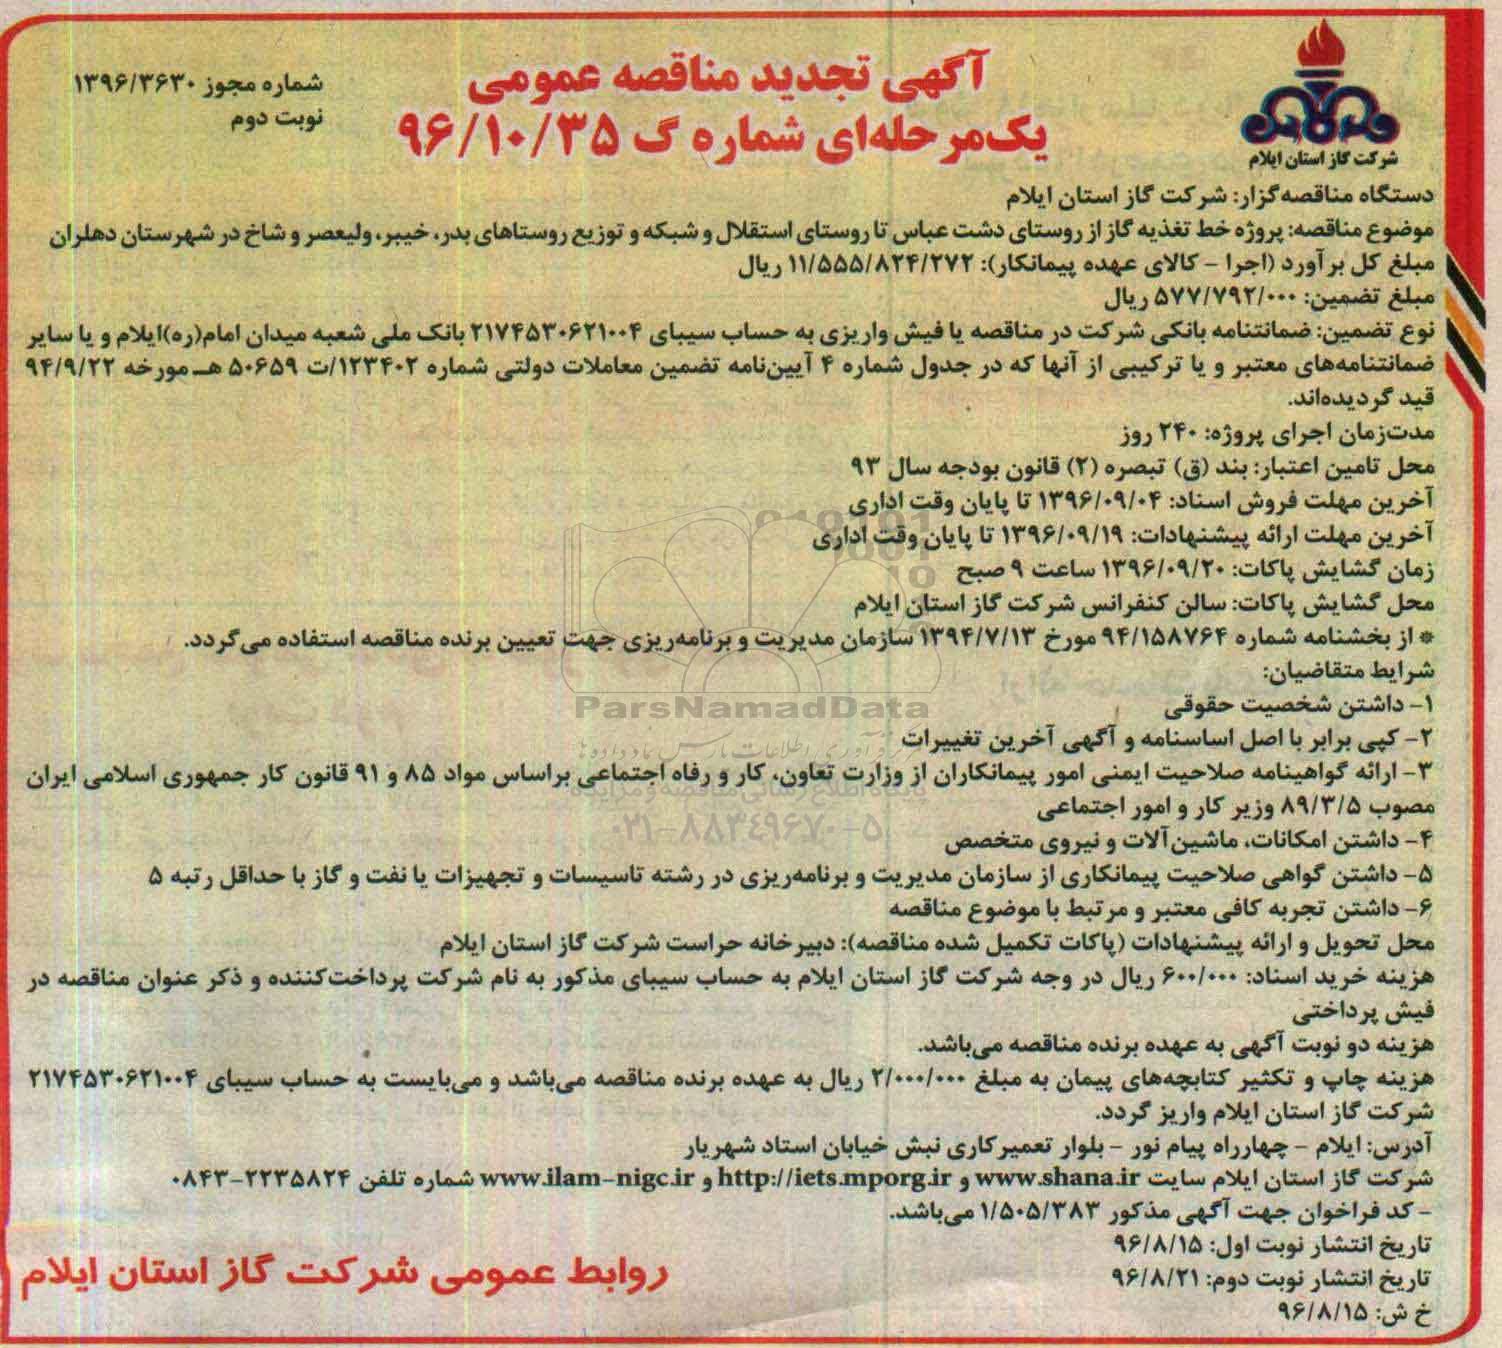 آگهی تجدید مناقصه عمومی
یک‌مرحله‌ای شماره گ ۹۶/۱۰/۳۵
شماره مجوز ۱۳۹۶/۳۶۳۰
نوبت دوم
شرکت گاز استان ایلام
دستگاه مناقصه‌گزار: شرکت گاز استان ایلام
موضوع مناقصه: پروژه خط تغذیه گاز از روستای دشت عباس تا روستای استقلال و شبکه و توزیع روستاهای بدر، خیبر، ولیعصر و شاخ در شهرستان دهلران
مبلغ کل برآورد (اجرا – کالای عهده پیمانکار): ۱۱/۵۵۵/۸۲۴/۲۷۲ ریال
مبلغ تضمین: ۵۷۷/۷۹۲/۰۰۰ ریال
نوع تضمین: ضمانتنامه بانکی شرکت در مناقصه یا فیش واریزی به حساب سیبای ۲۱۷۴۵۳۰۶۲۱۰۰۴ بانک ملی شعبه میدان امام(ره)ایلام و یا سایر
ضمانتنامه‌های معتبر و یا ترکیبی از آنها که در جدول شماره ۴ آیین‌نامه تضمین معاملات دولتی شماره ۱۲۳۴۰۲/ت ۵۰۶۵۹ هـ مورخه ۹۴/۹/۲۲
قید گردیده‌اند.
مدت‌زمان اجرای پروژه: ۲۴۰ روز
محل تامین اعتبار: بند (ق) تبصره (۲) قانون بودجه سال ۹۳
آخرین مهلت فروش اسناد: ۱۳۹۶/۰۹/۰۴ تا پایان وقت اداری
آخرین مهلت ارائه پیشنهادات: ۱۳۹۶/۰۹/۱۹ تا پایان وقت اداری
زمان گشایش پاکات: ۱۳۹۶/۰۹/۲۰ ساعت ۹ صبح
محل گشایش پاکات: سالن کنفرانس شرکت گاز استان ایلام
* از بخشنامه شماره ۹۴/۱۵۸۷۶۴ مورخ ۱۳۹۴/۷/۱۳ سازمان مدیریت و برنامه‌ریزی جهت تعیین برنده مناقصه استفاده می‌گردد.
شرایط متقاضیان:
۱– داشتن شخصیت حقوقی
ParsNamadData
۲– کپی برابر با اصل اساسنامه و آگهی آخرین تغییرات
۳– ارائه گواهینامه صلاحیت ایمنی امور پیمانکاران از وزارت تعاون، کار و رفاه اجتماعی براساس مواد ۸۵ و ۹۱ قانون کار جمهوری اسلامی ایران
مصوب ۸۹/۳/۵ وزیر کار و امور اجتماعی
۰۲۱–۸۸۳۴۹۶۷۰–۵
۴– داشتن امکانات، ماشین‌آلات و نیروی متخصص
۵– داشتن گواهی صلاحیت پیمانکاری از سازمان مدیریت و برنامه‌ریزی در رشته تاسیسات و تجهیزات یا نفت و گاز با حداقل رتبه ۵
۶– داشتن تجربه کافی معتبر و مرتبط با موضوع مناقصه
محل تحویل و ارائه پیشنهادات (پاکات تکمیل شده مناقصه): دبیرخانه حراست شرکت گاز استان ایلام
هزینه خرید اسناد: ۶۰۰/۰۰۰ ریال در وجه شرکت گاز استان ایلام به حساب سیبای مذکور به نام شرکت پرداخت‌کننده و ذکر عنوان مناقصه در
فیش پرداختی
هزینه دو نوبت آگهی به عهده برنده مناقصه می‌باشد.
هزینه چاپ و تکثیر کتابچه‌های پیمان به مبلغ ۲/۰۰۰/۰۰۰ ریال به عهده برنده مناقصه می‌باشد و می‌بایست به حساب سیبای ۲۱۷۴۵۳۰۶۲۱۰۰۴
شرکت گاز استان ایلام واریز گردد.
آدرس: ایلام – چهارراه پیام نور – بلوار تعمیرکاری نبش خیابان استاد شهریار
شرکت گاز استان ایلام سایت www.shana.ir و http://iets.mporg.ir و www.ilam-nigc.ir شماره تلفن ۲۲۳۵۸۲۴–۰۸۴۳
– کد فراخوان جهت آگهی مذکور ۱/۵۰۵/۳۸۳ می‌باشد.
تاریخ انتشار نوبت اول: ۹۶/۸/۱۵
تاریخ انتشار نوبت دوم: ۹۶/۸/۲۱
خ ش: ۹۶/۸/۱۵
روابط عمومی شرکت گاز استان ایلام